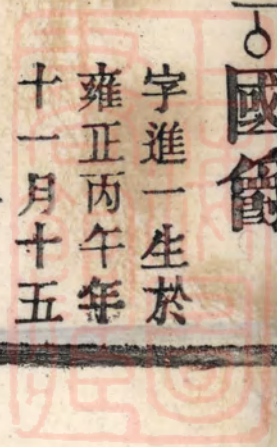 國爵
字進一生於
雍正丙午年
十一月十五